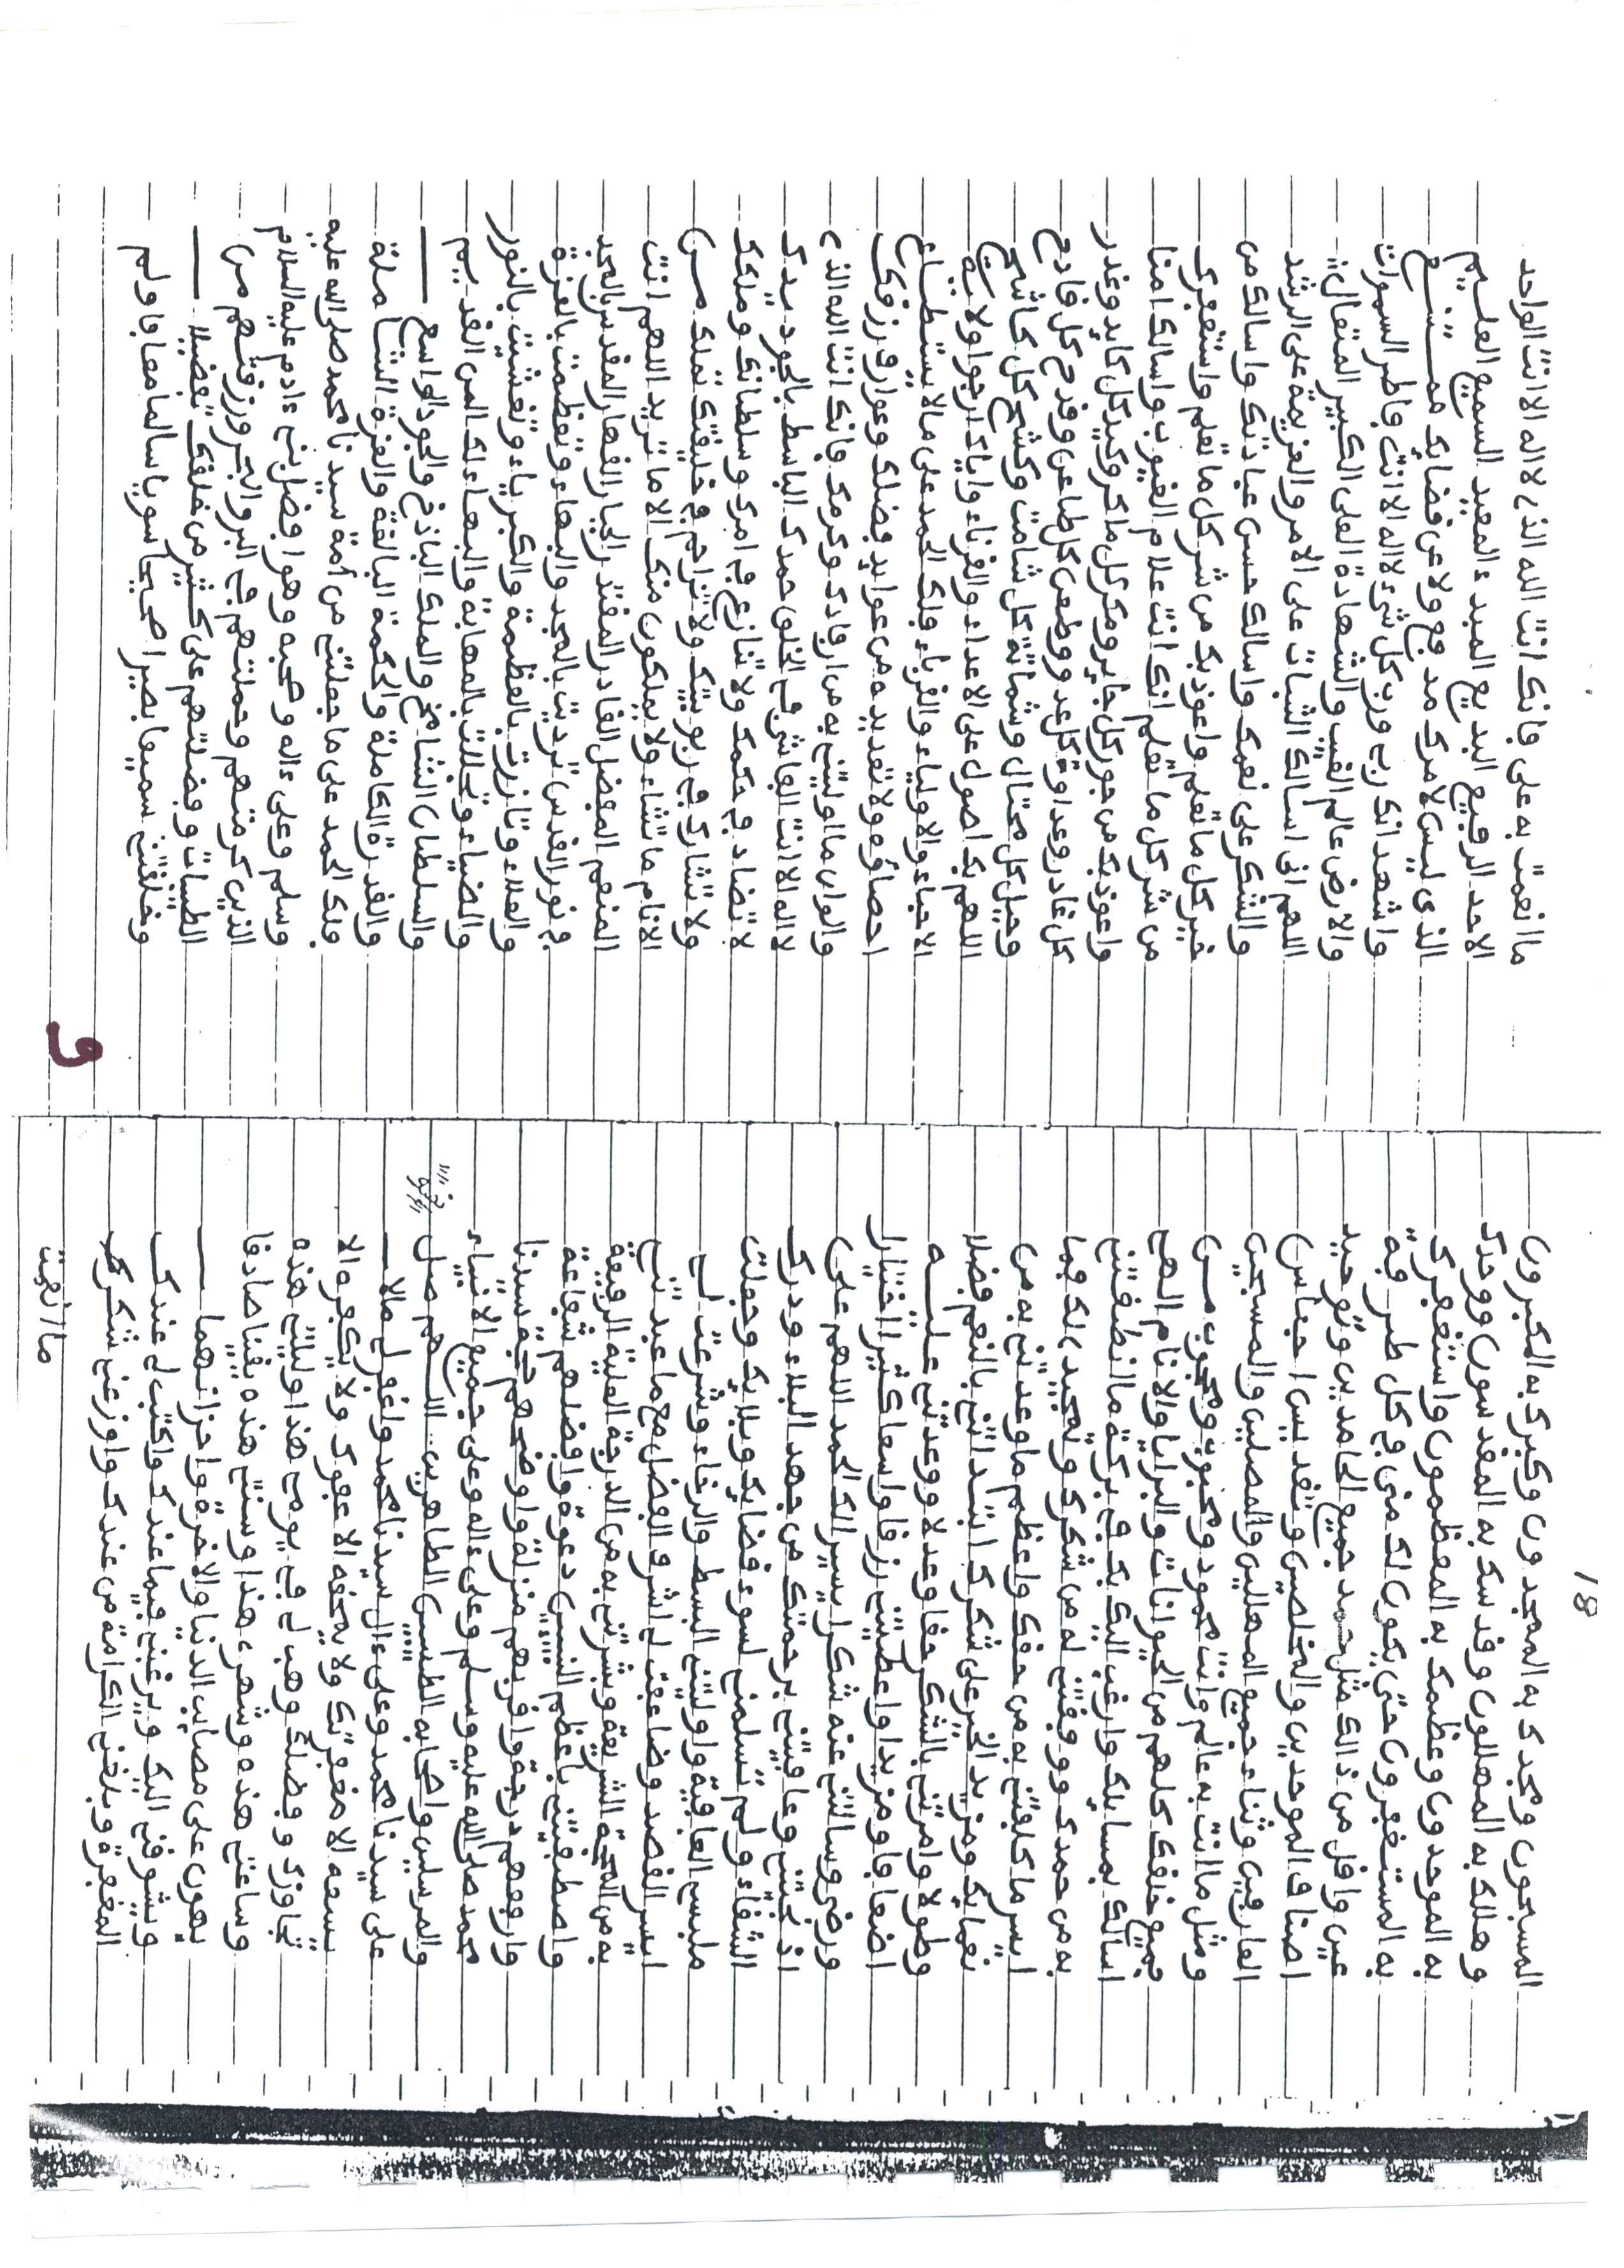 18
المسبحون ومجدك به الممجدون وكبرك به المكبرون
وهللك به المهللون وقدسك به المقدسون ووحدك
به الموحدون وعظمك به المعظمون واستغفرك
به المستغفرون حتى يكون لك منى في كل طرفة
عين واقل من ذالك مثل حمد جميع الحامدين وتوحيد
اصناف الموحدين والمخلصين وتقديس اجناس
العارفين وثناء جميع المهللين والمصلين والمسبحين
ومثل ما انت به عالم وانت محمود ومحبوب ومحجوب من
جميع خلقك كلهم من الحيوانات والبرايا والانام الهي
اسالك بمسايلك وارغب اليك بك في بركة ما انطقتني
به من حمدك ووفقتني له من شكرك وتمجيدي لك فما
ايسر ما كلفتني به من حقك واعظم ما وعدتني به من
نعمايك ومزيد الخير على شكرك ابتداتني بالنعم فضلا
وطولا وامرتني بالشكر حقا وعدلا ووعدتني عليه
اضعافا ومزيدا واعطيتني رزقا واسعا كثيرا اختيارا
ورضى وسالتني عنه شكرا يسيرا لك الحمد اللهم على
اذ نجيتني وعافيتني برحمتك من جهد البلاء ودرك
الشقاء ولم تسلمني لسوء قضايك وبلايك وجعلت
ملبسي العافية واوليتني البسط والرخاء وشرعت لي
ايسر القصد وضاعفت لي اشرف الفضل مع ما عبدتني
به من المحجة الشريفة وبشرتني به من الدرجة العلية الرفيعة
واصطفيتني باعظم النبيين دعوة وافضلهم شفاعة
وارفعهم درجة واقربهم منزلة واوضحهم حجة سيدنا
محمد صلى الله عليه وسلم وعلى ءاله وعلى جميع الانبياء
والمرسلين واصحابه الطيبين الطاهرين اللهم صل
على سيدنا محمد وعلى ءال سيدنا محمد واغفر لي مالا
يسعه الا مغفرتك ولا يمحقه الا عفوك ولا يكفره الا
تجاوزك وفضلك وهب لي في يومي هذا وليلتي هذه
وساعتي هذه وشهرى هذا وسنتي هذه يقينا صادقا
يهون على مصايب الدنيا والاخرة واحزانهما
ويشوقني اليك ويرغبني فيما عندك واكتب لي عندك
المغفرة وبلغني الكرامة من عندك واوزعني شكر
ما انعمت
ما انعمت به على فانك انت الله الذى لا اله الا انت الواحد
الاحد الرفيع البديع المبدء المعيد السميع العليم
الذى ليس لامرك مدفع ولا عن قضايك ممتنع
واشهد انك ربى ورب كل شىء لا اله الا انت فاطر السموات
والارض عالم الغيب والشهادة العلى الكبير المتعال
اللهم انى اسالك الثبات على الامر والعزيمة على الرشد
والشكر على نعمك واسالك حسن عبادتك واسالك من
خير كل ما تعلم واعوذ بك من شر كل ما تعلم واستغفرك
من شر كل ما تعلم انك انت علام الغيوب واسالك امنا
واعوذ بك من جور كل جاير ومكر كل ماكر وكيد كل كايد وغدر
كل غادر وعداوة كل عدو وطعن كل طاعن وقدح كل قادح
وحيل كل محتال وشماتة كل شامت وكشح كل كاشح
اللهم بك اصول على الاعداء والقرناء واياك ارجوا ولاية
الاحباء والاولياء والقرباء فلك الحمد على مالا يستطاع
احصاؤه ولا تعديده من عوايد فضلك وعوارف رزقك
والوان ما اوليتني به من ارفادك وكرمك فانك انت الله الذى
لا اله الا انت الفاشى في الخلق حمدك الباسط بالجود يدك
لا تضاد في حكمك ولا تنازع في امرك وسلطانك وملكك
ولا تشارك في ربوبيتك ولا تزاحم في خليقتك تملك من
الانام ما تشاء ولا يملكون منك الا ما تريد اللهم انت
المنعم المفضل القادر المقتدر الجبار القهار المقدس بالمجد
في نور القدس ترديت بالمجد والبهاء وتعظمت بالعزة
والعلاء وتازرت بالعظمة والكبرياء وتغشيت بالنور
والضياء وتجللت بالمهابة والبهاء لك المن القديم
والسلطان الشامخ والملك الباذخ والجود الواسع
والقدرة الكاملة والحكمة البالغة والعزة الشاملة
فلك الحمد على ما جعلتني من امة سيدنا محمد صلى الله عليه
وسلم وعلى ءاله وصحبه وهو افضل بنى ءادم عليه السلام
الذين كرمتهم وحملتهم في البر والبحر ورزقتهم من
الطيبات وفضلتهم على كثير من خلقك تفضيلا
وخلقتني سميعا بصيرا صحيحا سويا سالما معافا ولم